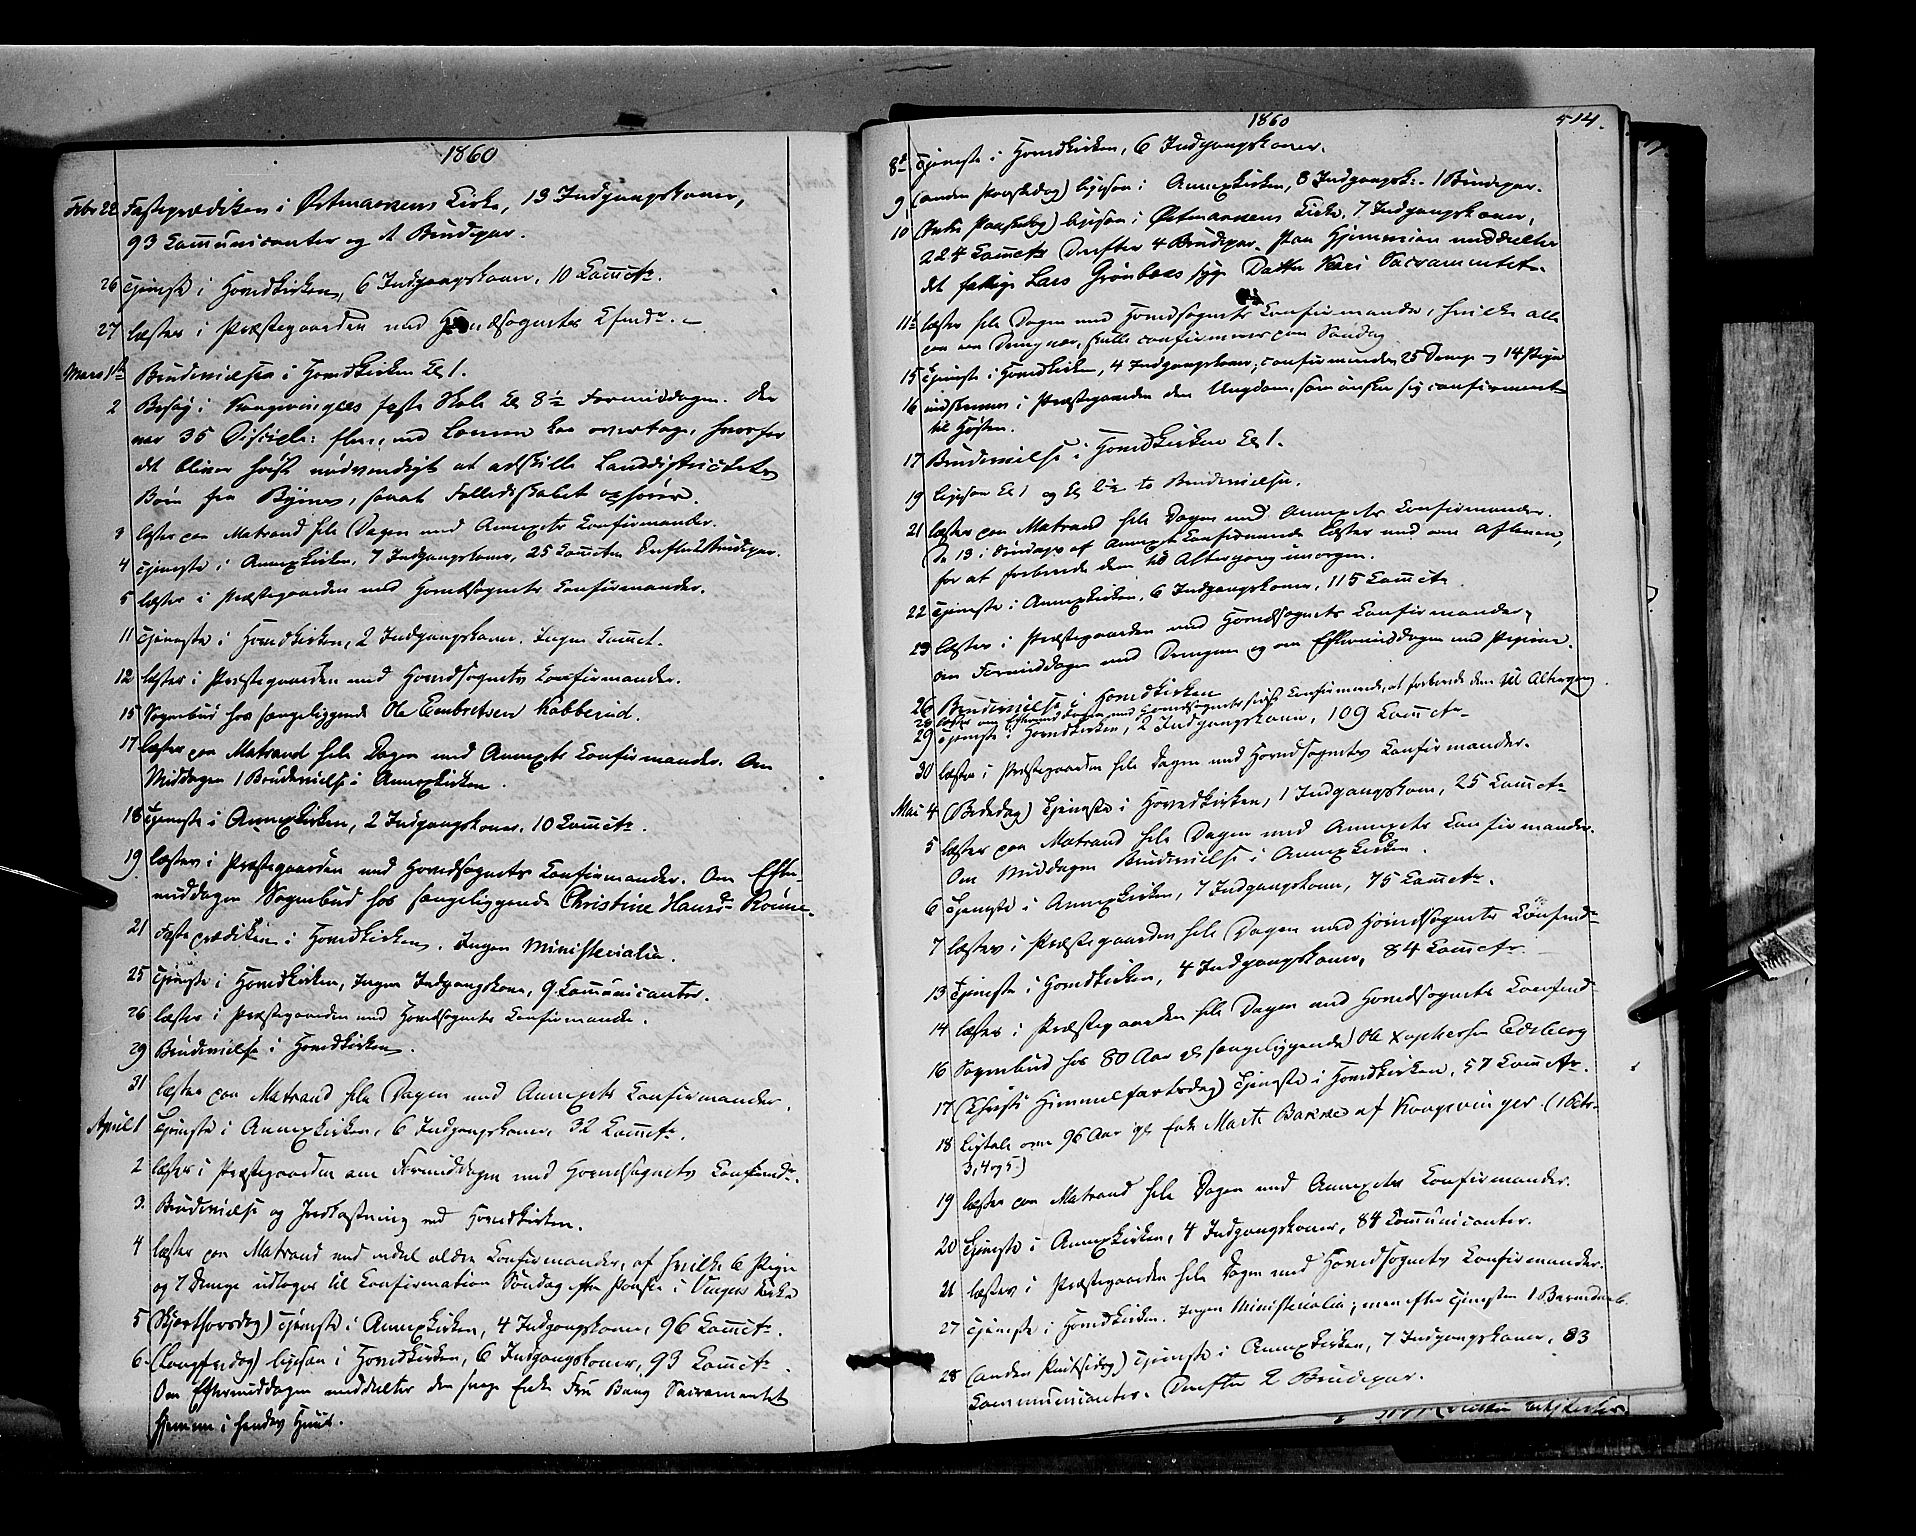 1860
Febr 22 Fasteprædiken i Østmarkens Kirke, 13 Indgangskoner,
93 Communicanter og 1 Brudepar.
26 Tjeneste i Hovedkirken, 6 Indgangskoner, 10 Com̅ctr
27 læster i Præstegaarden med Hovedsognets Cfmdr.
Mars 1ste Brudevielse i Hovedkirken Kl 1.
2 Besøg i Kongsvingers faste Skole Kl 8½ Formiddagen. Der
var 35 Discipler: flere, end Læreren kan overtage, hvorfor
det bliver høist nødvendigt at adskille Landdistrictets
Børn fra Byens, saa at Fælledsskabet ophører.
3 læster paa Matrand hele Dagen med Annexets Confirmander.
4 Tjeneste i Annexkirken, 7 Indgangskoner, 25 Com̅ctr. Derefter 2 Brudepar.
5 læster i Præstegaarden med Hovedsognets Confirmander.
11 Tjeneste i Hovedkirken, 2 Indgangskoner. Ingen Com̅ct.
12 læster i Præstegaarden med Hovedsognets Confirmander.
15 Sognebud hos sengeliggende Ole Embretsen Kabberud.
17 læster paa Matrand hele Dagen med Annexets Confirmander. Om
Middagen 1 Brudevielse i Annexkirken.
18 Tjeneste i Annexkirken, 2 Indgangskoner, 10 Com̅ctr.
19 læster i Præstegaarden med Hovedsognets Confirmander. Om Efter-
middagen Sognebud hos sengeliggende Christine Hansdr
21 Fasteprædiken i Hovedkirken. Ingen Ministerialia.
25 Tjeneste i Hovedkirken, Ingen Indgangskone, 9 Communicanter.
26 læster i Præstegaarden med Hovedsognets Confirmander.
29 Brudevielse i Hovedkirken.
31 læster paa Matrand hele Dagen med Annexets Confirmander.
April 1 Tjeneste i Annexkirken, 6 Indgangskoner, 32 Com̅ctr.
2 læster i Præstegaarden om Formiddagen med Hovedsognets Confirmdr.
3. Brudevielse og Jordkastning ved Hovedkirken.
4 læster paa Matrand med endel ældre Confirmander, af hvilke 6 Piger
og 7 Drenge udtoges til Confirmation Søndag efter Paaske i Vingers Kirke
5 (Skjærthorsdag) Tjeneste i Annexkirken, 4 Indgangskoner, 96 Com̅ctr.
6 (Langfredag) ligesaa i Hovedkirken, 6 Indgangskoner, 93 Com̅ctr.
Om Eftermiddagen meddeeltes den syge Enke Fru Bang Sacramentet
hjemme i hendes Huus.
1860
514.
8de Tjeneste i Hovedkirken, 6 Indgangskoner.
9 (anden Paaskedag) ligesaa i Annexkirken, 8 Indgangsk:. 1 Brudepar.
10 (3die Paaskedag) ligesaa i Østmarkens Kirke, 7 Indgangskoner,
224 Com̅ctr Derefter 4 Brudepar. Paa Hjemveien meddeeltes
det fattige Lars Grønbæks syge Datter Kari Sacramentet.
11te læster hele Dagen med Hovedsognets Confirmander, hvilke alle
paa en Dreng nær, skulle confirmeres paa Søndag
15 Tjeneste i Hovedkirken, 4 Indgangskoner, confirmeredes 25 Drenge og 14 Piger
16 indskreves i Præstegaarden den Ungdom, som ønsker sig confirmeret
til Høsten.
17 Brudevielse i Hovedkirken Kl 1.
19 ligesaa Kl 1 og Kl 2½ to Brudevielser.
21 læster paa Matrand hele Dagen med Annexets Confirmander.
De 13 i Søndags af Annexets Confirmerede læster med om Aftenen,
for at forberede dem til Altergang imorgen.
22 Tjeneste i Annexkirken, 6 Indgangskoner, 115 Com̅ctr
23 læster i Præstegaarden med Hovedsognets Confirmander,
om Formiddagen med Drengene og om Eftermiddagen med Pigerne.
26 Brudevielse i Hovedkirken
28 læster om Eftermiddagen med Hovedsognets sidst Confirmerede, at forberede dem til Altergang.
29 Tjeneste i Hovedkirken, 2 Indgangskoner, 109 Com̅ctr
30 læster i Præstegaarden hele Dagen med Hovedsognets Confirmander.
Mai 4 (Bededag) Tjeneste i Hovedkirken, 1 Indgangskone, 25 Com̅ctr
5 læster paa Matrand hele Dagen med Annexets Confirmander.
Om Middagen Brudevielse i Annexkirken.
6 Tjeneste i Annexkirken, 7 Indgangskoner, 75 Com̅ctr.
7 læster i Præstegaarden hele Dagen med Hovedsognets Confmdr
13 Tjeneste i Hovedkirken, 4 Indgangskoner, 84 Com̅ctr.
14 læster i Præstegaarden hele Dagen med Hovedsognets Confmdr
16 Sognebud hos 80 Aar gl sengeliggende Ole Xsophersen Edsberg
17 (Christi Himmelfartsdag) Tjeneste i Hovedkirken, 57 Com̅ctr.
18 Ligtale over 96 Aar gl Enke Marte Bakke af Kongsvinger (1 Petr.
3, 4 og 5.)
19 læster paa Matrand hele Dagen med Annexets Confirmander.
20 Tjeneste i Annexkirken, 4 Indgangskoner, 84 Communicanter.
21 læster i Præstegaarden hele Dagen med Hovedsognets Confirmander.
27 Tjeneste i Hovedkirken. Ingen Ministerialia; men efter Tjenesten 1 Barnedaab.
28 (anden Pintsedag) Tjeneste i Annexkirken, 7 Indgangskoner, 83
Communicanter. Derefter 2 Brudepar.